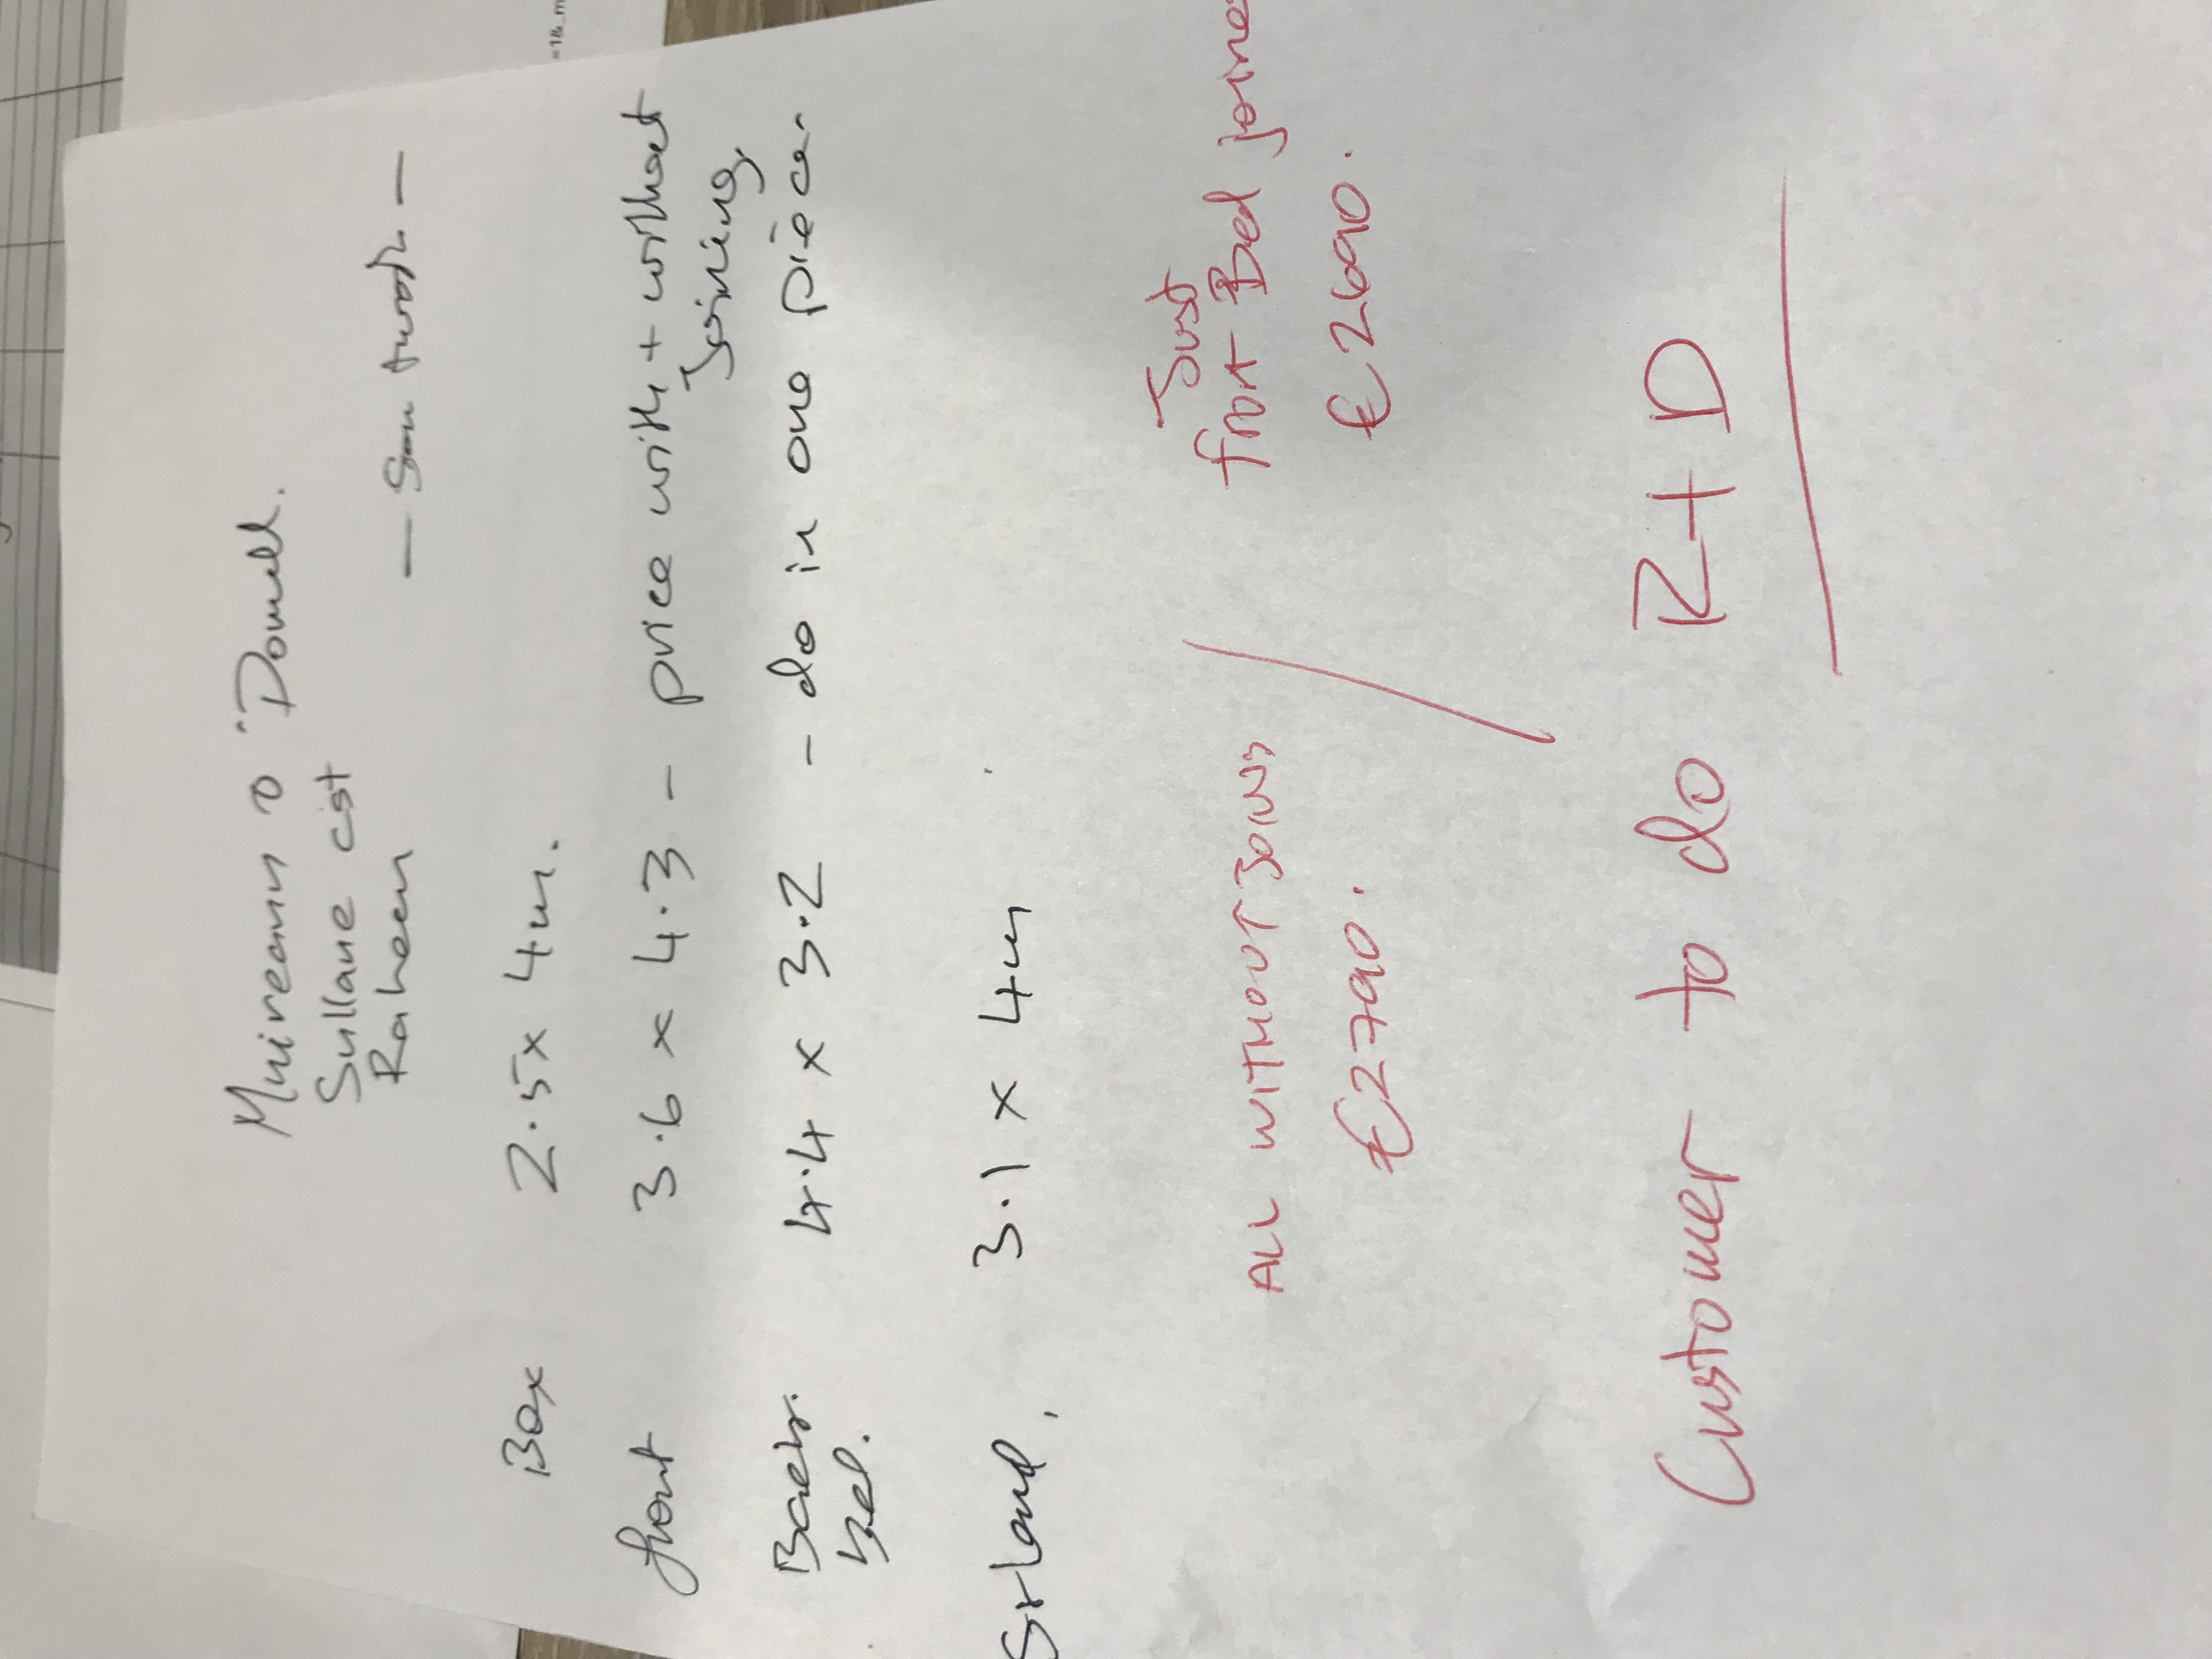 Muireann O'Donnell.
Sullane cist
Raheen
Box 2.5 x 4m.
front 3.6 x 4.3 - price with + without
Joining,
Back. 4.4 x 3.2 - do in one piece.
bed.
St+land, 3.1 x 4m
ALL WITHOUT JOINS / Just
front Bed joine
€2790. €2690.
Customer to do R+D